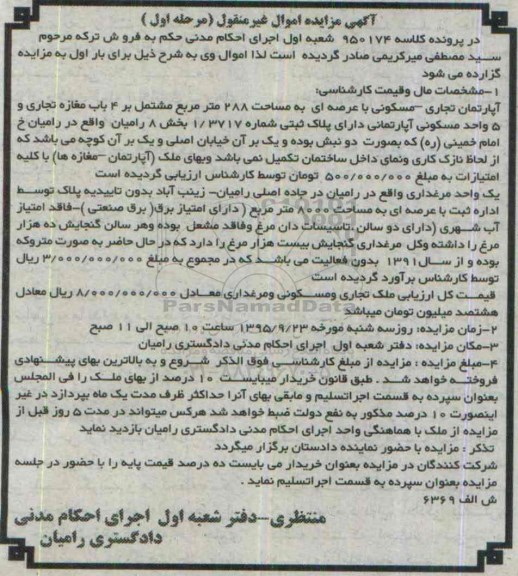 آگهی مزایده اموال غیرمنقول (مرحله اول)
در پرونده کلاسه ۹۵۰۱۷۴ شعبه اول اجرای احکام مدنی حکم به فروش ترکه مرحوم
سید مصطفی میرکریمی صادر گردیده است لذا اموال وی به شرح ذیل برای بار اول به مزایده
گزارده می شود
۱-مشخصات مال وقیمت کارشناسی:
آپارتمان تجاری –مسکونی با عرصه ای به مساحت ۲۸۸ متر مربع مشتمل بر ۴ باب مغازه تجاری و
۵ واحد مسکونی آپارتمانی دارای پلاک ثبتی شماره ۱/۳۷۱۷ بخش ۸ رامیان واقع در رامیان خ
امام خمینی (ره) که بصورت دو نبش بوده و یک بر آن خیابان اصلی و یک بر آن کوچه می باشد که
از لحاظ نازک کاری ونمای داخل ساختمان تکمیل نمی باشد وبهای ملک (آپارتمان–مغازه ها) با کلیه
امتیازات به مبلغ ۵۰۰/۰۰۰/۰۰۰ تومان توسط کارشناس ارزیابی گردیده است
یک واحد مرغداری واقع در رامیان در جاده اصلی رامیان- زینب آباد بدون تاییدیه پلاک توسط
اداره ثبت با عرصه ای به مساحت متر مربع (دارای امتیاز برق( برق صنعتی )-فاقد امتیاز
آب شهری (دارای دو سالن ،تاسیسات دان مرغ وفاقد مشعل بوده وهر سالن گنجایش ده هزار
مرغ را داشته وکل مرغداری گنجایش بیست هزار مرغ را دارد که در حال حاضر به صورت متروکه
بوده و از سال ۱۳۹۱ بدون فعالیت می باشد که در مجموع به مبلغ ۳/۰۰۰/۰۰۰/۰۰۰ ریال
توسط کارشناس برآورد گردیده است
قیمت کل ارزیابی ملک تجاری ومسکونی ومرغداری معادل ۸/۰۰۰/۰۰۰/۰۰۰ ریال معادل
هشتصد میلیون تومان میباشد
۲-زمان مزایده: روزسه شنبه مورخه ۱۳۹۵/۹/۲۳ ساعت ۱۰ صبح الی ۱۱ صبح
۳-مکان مزایده: دفتر شعبه اول اجرای احکام مدنی دادگستری رامیان
۴-مبلغ مزایده : مزایده از مبلغ کارشناسی فوق الذکر شروع و به بالاترین بهای پیشنهادی
فروخته خواهد شد . طبق قانون خریدار میبایست ۱۰ درصد از بهای ملک را فی المجلس
بعنوان سپرده به قسمت اجراتسلیم و مابقی بهای آنرا حداکثر ظرف مدت یک ماه بپردازد در غیر
اینصورت ۱۰ درصد مذکور به نفع دولت ضبط خواهد شد هرکس میتواند در مدت ۵ روز قبل از
مزایده از ملک با هماهنگی واحد اجرای احکام مدنی دادگستری رامیان بازدید نماید
تذکر : مزایده با حضور نماینده دادستان برگزار میگردد
شرکت کنندگان در مزایده بعنوان خریدار می بایست ده درصد قیمت پایه را با حضور در جلسه
مزایده بعنوان سپرده به قسمت اجراتسلیم نماید .
ش الف ۶۳۶۹
منتظری-دفتر شعبه اول اجرای احکام مدنی
دادگستری رامیان
ParsNamadData